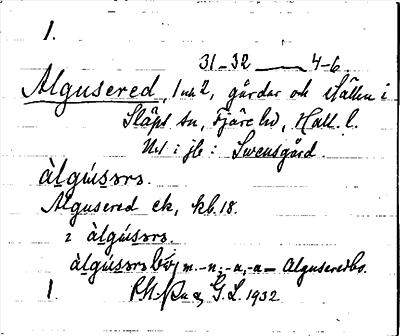 1.
31-32 — 4-6
Algusered, 1 och 2, gårdar och ställen i
Släps sn, Fjäre hd, Hall. l.
: Svensgård.
àlgúsərə.
Algusered ek, kb. 18.
2 àlgúsərə.
àlgúsərəbo m. -n, -a, -a = Alguseredbo.
1. G. L. 1932